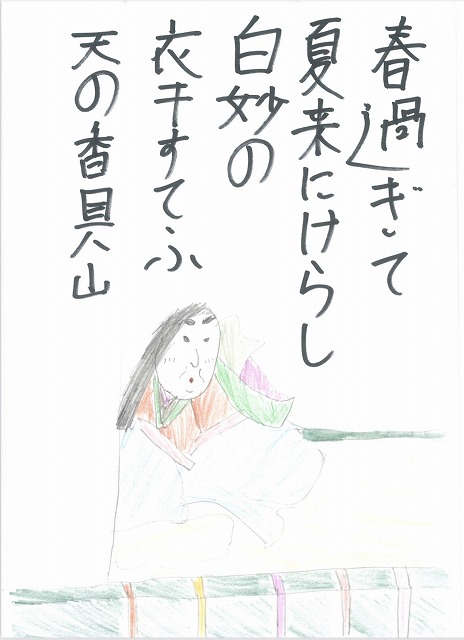 春過ぎて
夏来にけらし
白妙の
衣キすてふ
天の香具山